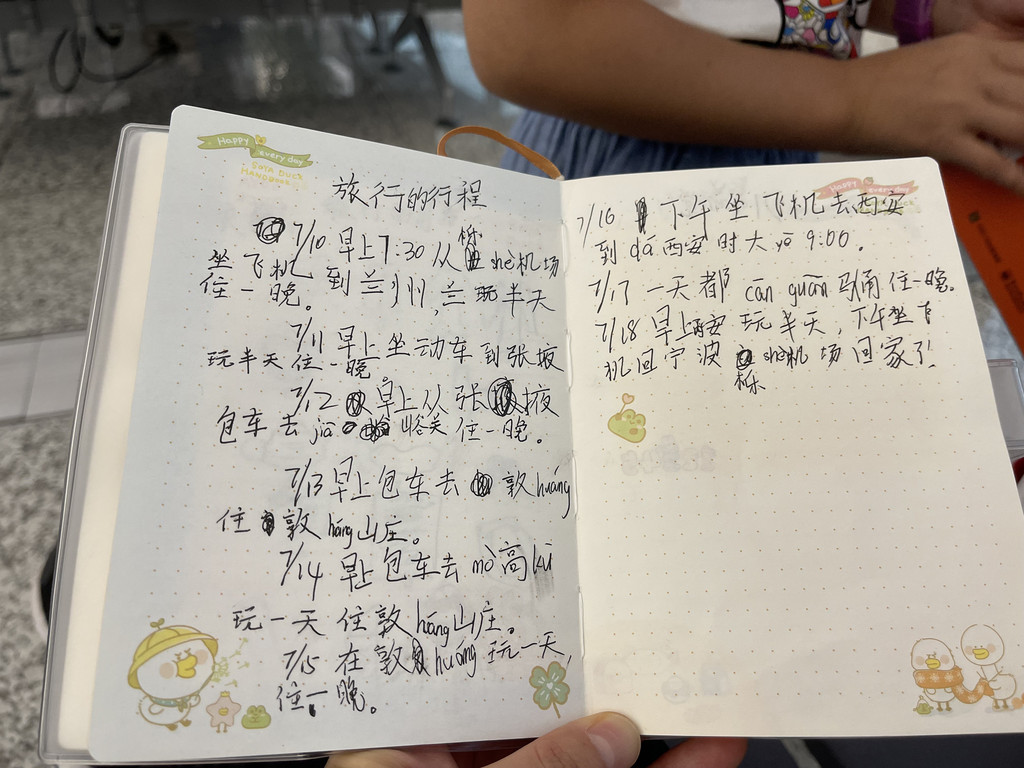 Happy
every day
旅行的行程
7/10 早上7:30从栎shè机场
坐飞机到兰州,兰玩半天
住一晚。
7/11 早上坐动车到张掖
玩半天住一晚
7/12 早上从张掖
包车去jiā峪关住一晚。
7/13 早上包车去敦huáng
住敦háng山庄。
7/14 早上包车去mò高kū
玩一天住敦háng山庄。
7/15 在敦huáng玩一天,
住一晚。
Happy
every day
7/16 下午坐飞机去西安
到dá西安时大yō 9:00.
7/17 一天都cān guān 马俑住一晚。
7/18 早上西安玩半天,下午坐飞
机回宁波栎shè机场回家了!